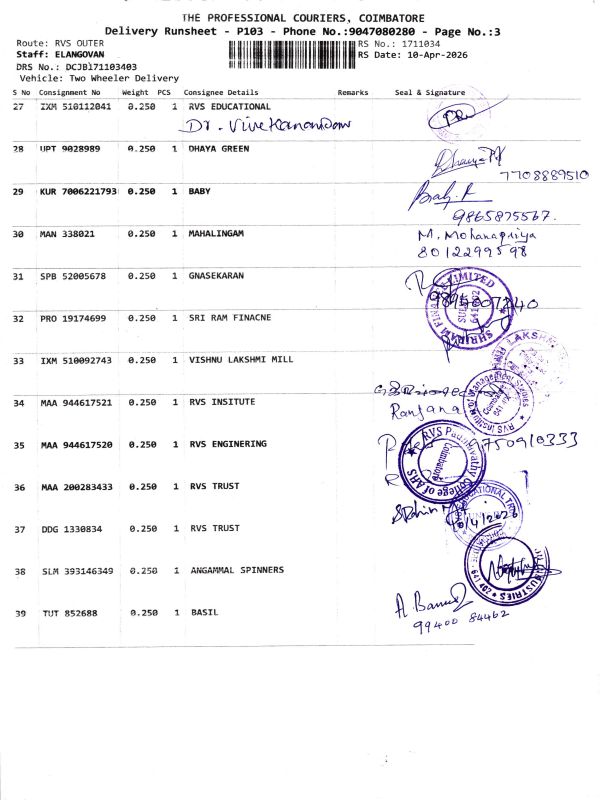 THE PROFESSIONAL COURIERS, COIMBATORE
Delivery Runsheet - P103 - Phone No.:9047080280 - Page No.:3
Route: RVS OUTER RS No.: 1711034
Staff: ELANGOVAN RS Date: 10-Apr-2026
DRS No.: DCJB171103403
Vehicle: Two Wheeler Delivery
S No Consignment No Weight PCS Consignee Details Remarks Seal & Signature
27 IXM 510112041 0.250 1 RVS EDUCATIONAL
Dr. Vivekanandan
28 UPT 9028989 0.250 1 DHAYA GREEN
7708889510
29 KUR 7006221793 0.250 1 BABY
9865875567.
30 MAN 338021 0.250 1 MAHALINGAM M. Mohanapriya
8012299598
31 SPB 52005678 0.250 1 GNASEKARAN
32 PRO 19174699 0.250 1 SRI RAM FINACNE
33 IXM 510092743 0.250 1 VISHNU LAKSHMI MILL
34 MAA 944617521 0.250 1 RVS INSITUTE Ranjana
35 MAA 944617520 0.250 1 RVS ENGINERING
RVS Padmavathy College of AHS
Coimbatore
36 MAA 200283433 0.250 1 RVS TRUST
10/4/2026
37 DDG 1330834 0.250 1 RVS TRUST
38 SLM 393146349 0.250 1 ANGAMMAL SPINNERS
39 TUT 852688 0.250 1 BASIL
99400 84462